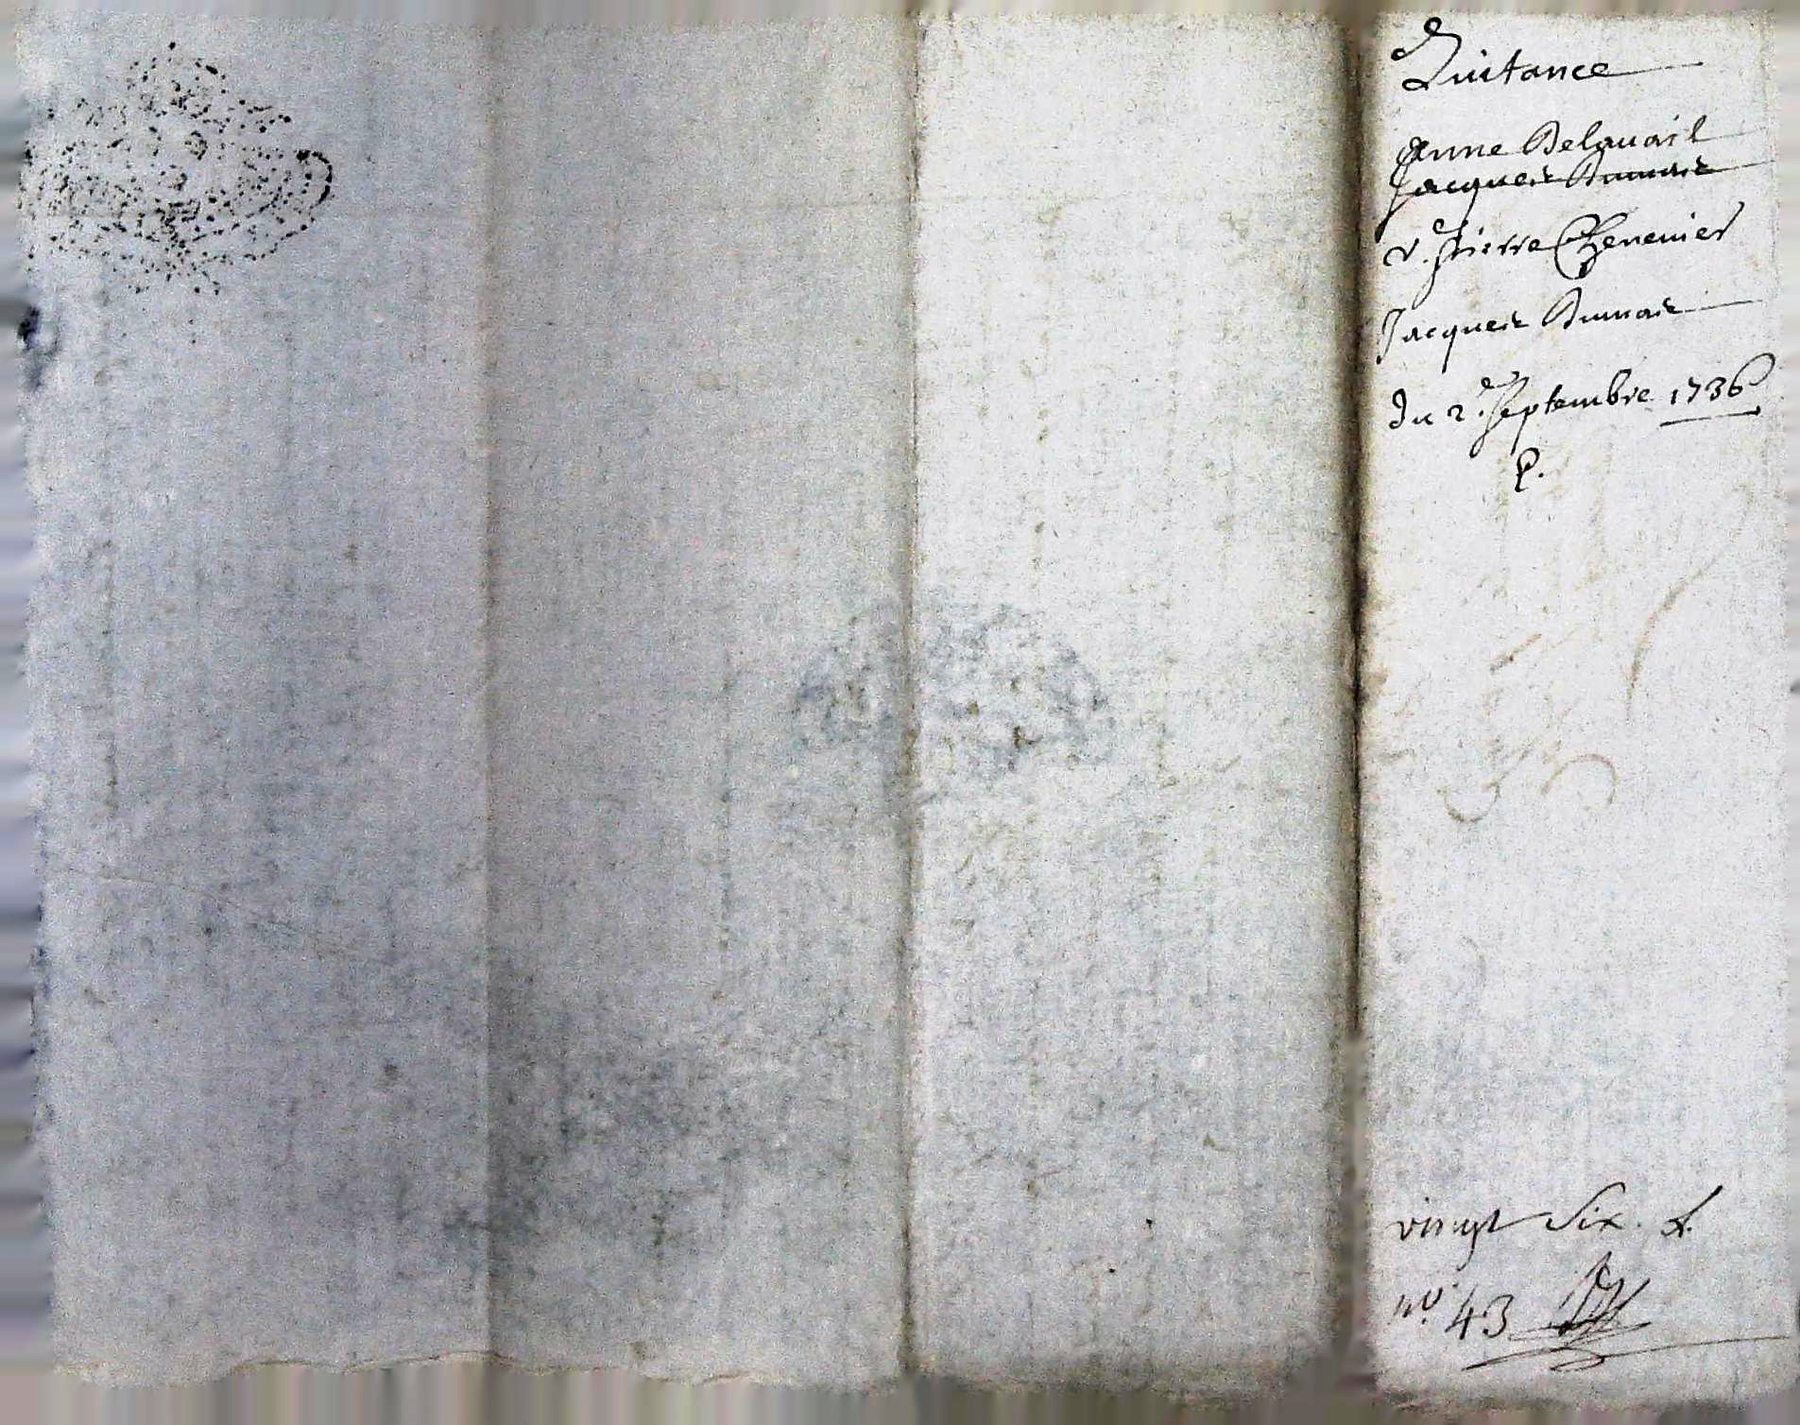 Quitance
Anne Delauail
Jacques Dumas
v.e Pierre Chenevier
Jacques Dumas
du 2.e Septembre 1736
P.
vingt Six.
no. 43